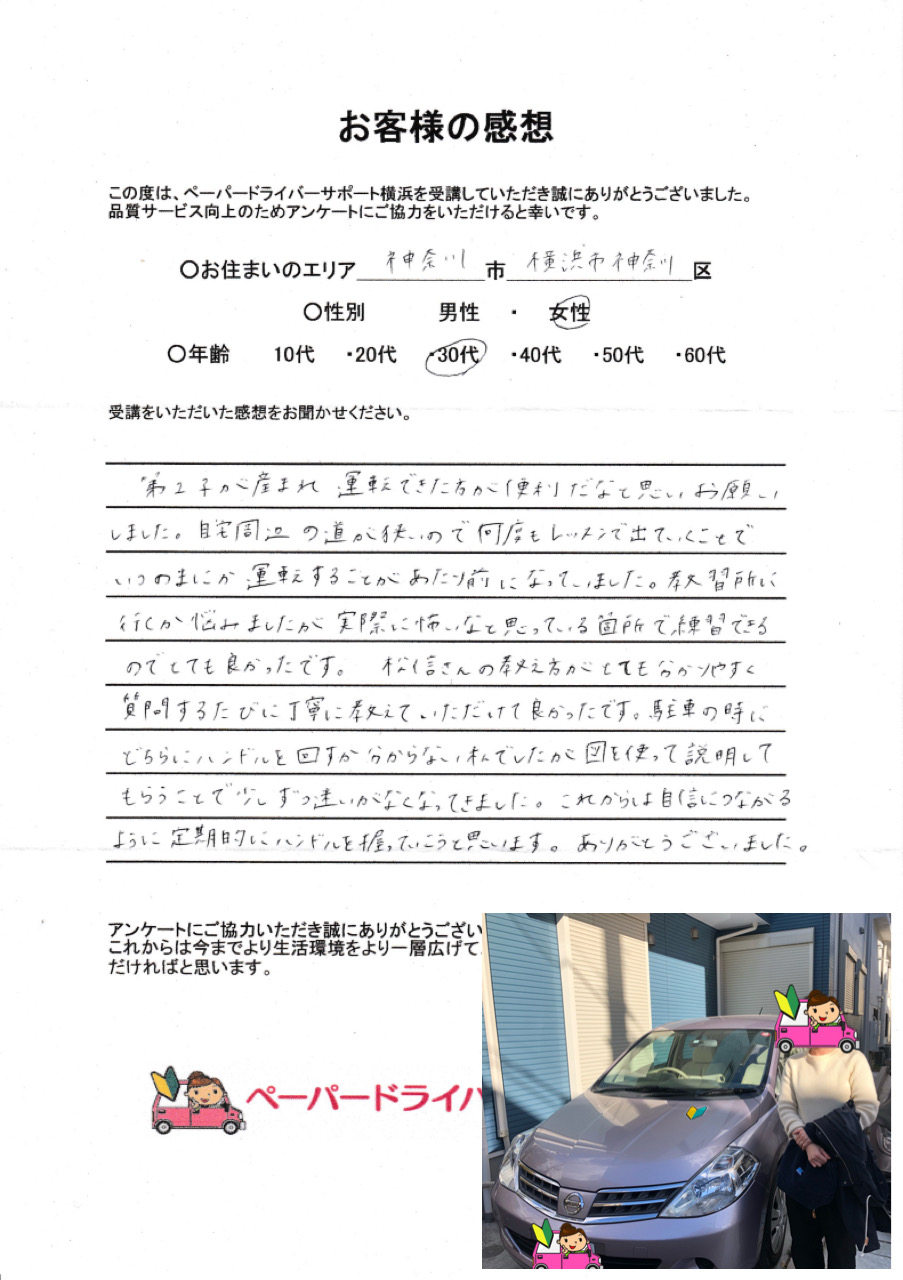 お客様の感想
この度は、ペーパードライバーサポート横浜を受講していただき誠にありがとうございました。
品質サービス向上のためアンケートにご協力をいただけると幸いです。
〇お住まいのエリア 神奈川 市 横浜市神奈川 区
〇性別 男性 ・ 女性
〇年齢 10代 ・20代 ・30代 ・40代 ・50代 ・60代
受講をいただいた感想をお聞かせください。
第2子が産まれ 運転できた方が便利だなと思いお願い
しました。自宅周辺の道が狭いので何度もレッスンで出ていくことで
いつのまにか運転することがあたり前になっていました。教習所に
行くか悩みましたが実際に怖いなと思っている箇所で練習できる
のでとても良かったです。 松信さんの教え方がとても分かりやすく
質問するたびに丁寧に教えていただけて良かったです。駐車の時に
どちらにハンドルを回すか分からない私でしたが図を使って説明して
もらうことで少しずつ迷いがなくなってきました。これからは自信につながる
ように定期的にハンドルを握っていこうと思います。ありがとうございました。
アンケートにご協力いただき誠にありがとうござい
これからは今までより生活環境をより一層広げて
だければと思います。
ペーパードライバ